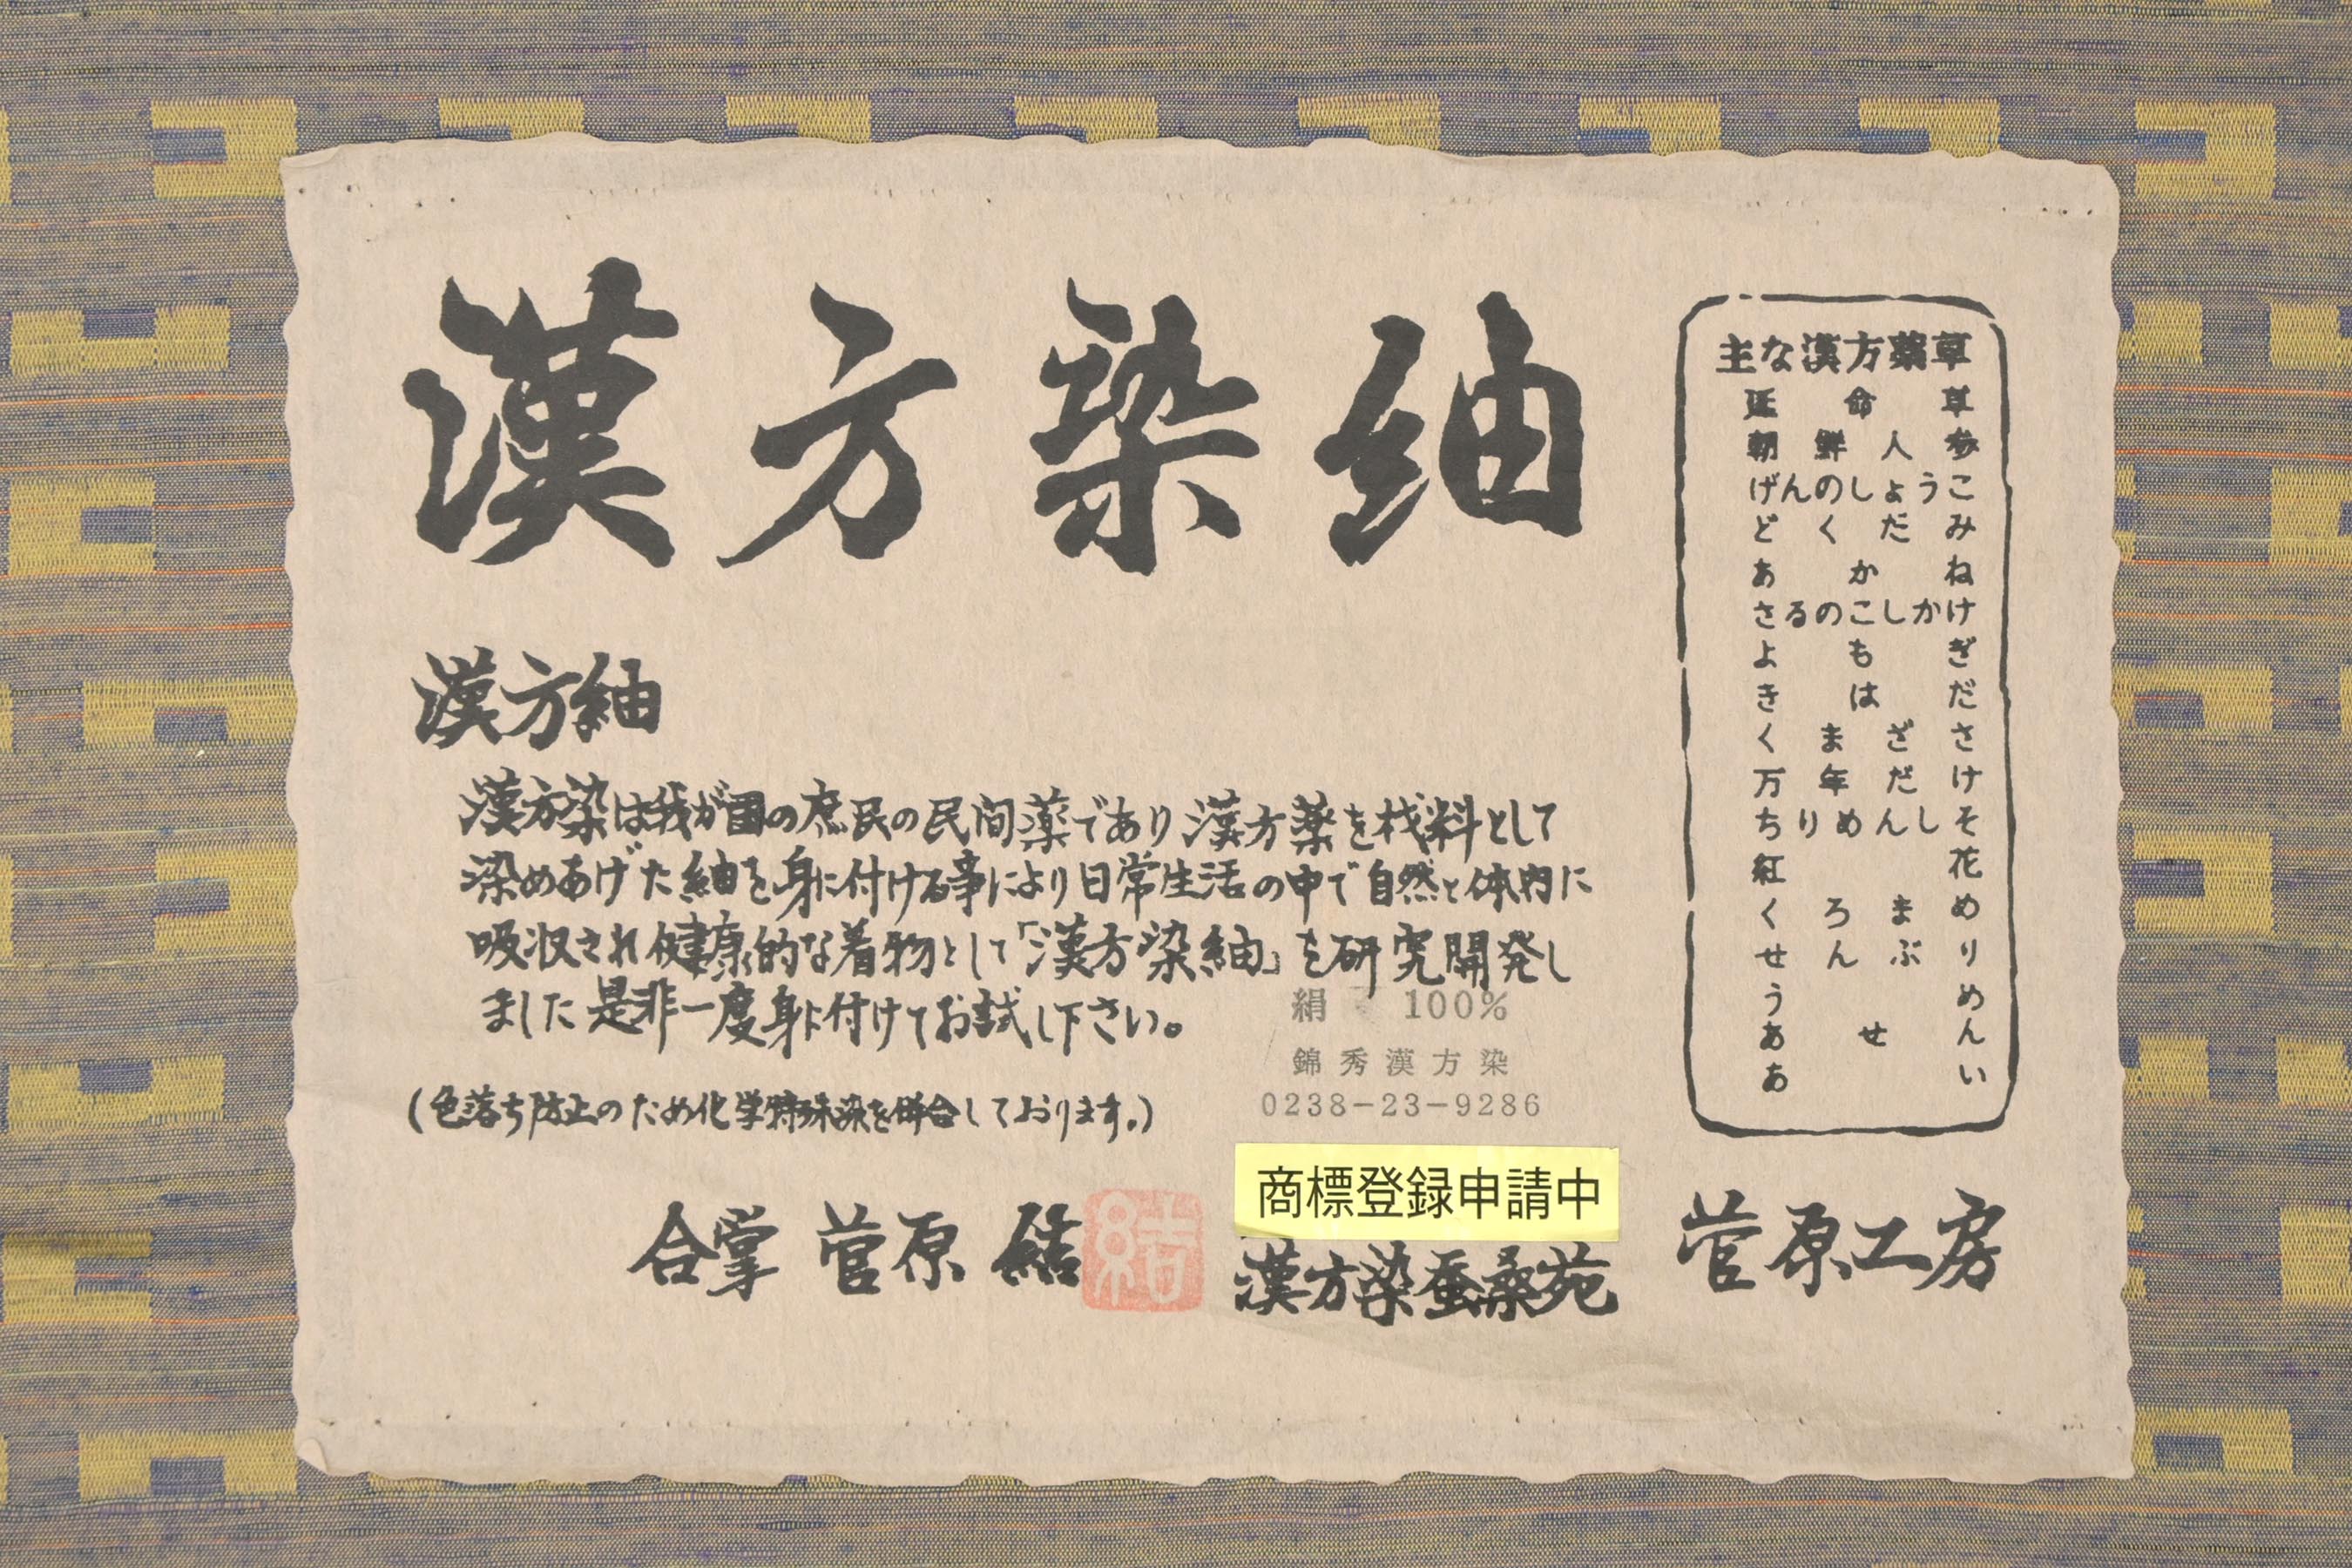 漢方染紬
漢方紬
漢方染は我が国の庶民の民間薬であり漢方薬を材料として
染めあげた紬を身に付ける事により日常生活の中で自然と体内に
吸収され健康的な着物として「漢方染紬」を研究開発し
ました是非一度身に付けてお試し下さい。
(色落ち防止のため化学特殊染を併合しております。)
絹 100%
錦秀漢方染
0238-23-9286
商標登録申請中
合掌 菅原 結
結
漢方染蚕桑苑
菅原工房
主な漢方薬草
延命草
朝鮮人参
げんのしょうこ
どくだみ
あかね
さるのこしかけ
よもぎ
きはだ
くまざさ
万年だけ
ちりめんしそ
紅花
くろまめ
せんぶり
うめ
あせん
あい